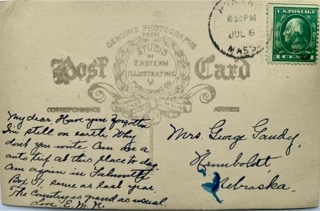 GENUINE PHOTOGRAPHS
FROM
STUDIO
OF
EASTERN
ILLUSTRATING
Post Card
CORRESPONDENCE
ADDRESS
630 PM
JUL 6
MASS.
U.S. POSTAGE
My dear. Have you forgotten
I'm still on earth. Why
don't you write. Am on a
auto trip at this place to day
Am again in Falmouth
Box 57, same as last year.
The Country as grand as usual.
Love E. M. K.
Mrs. George Gandy,
Humboldt
Nebraska.